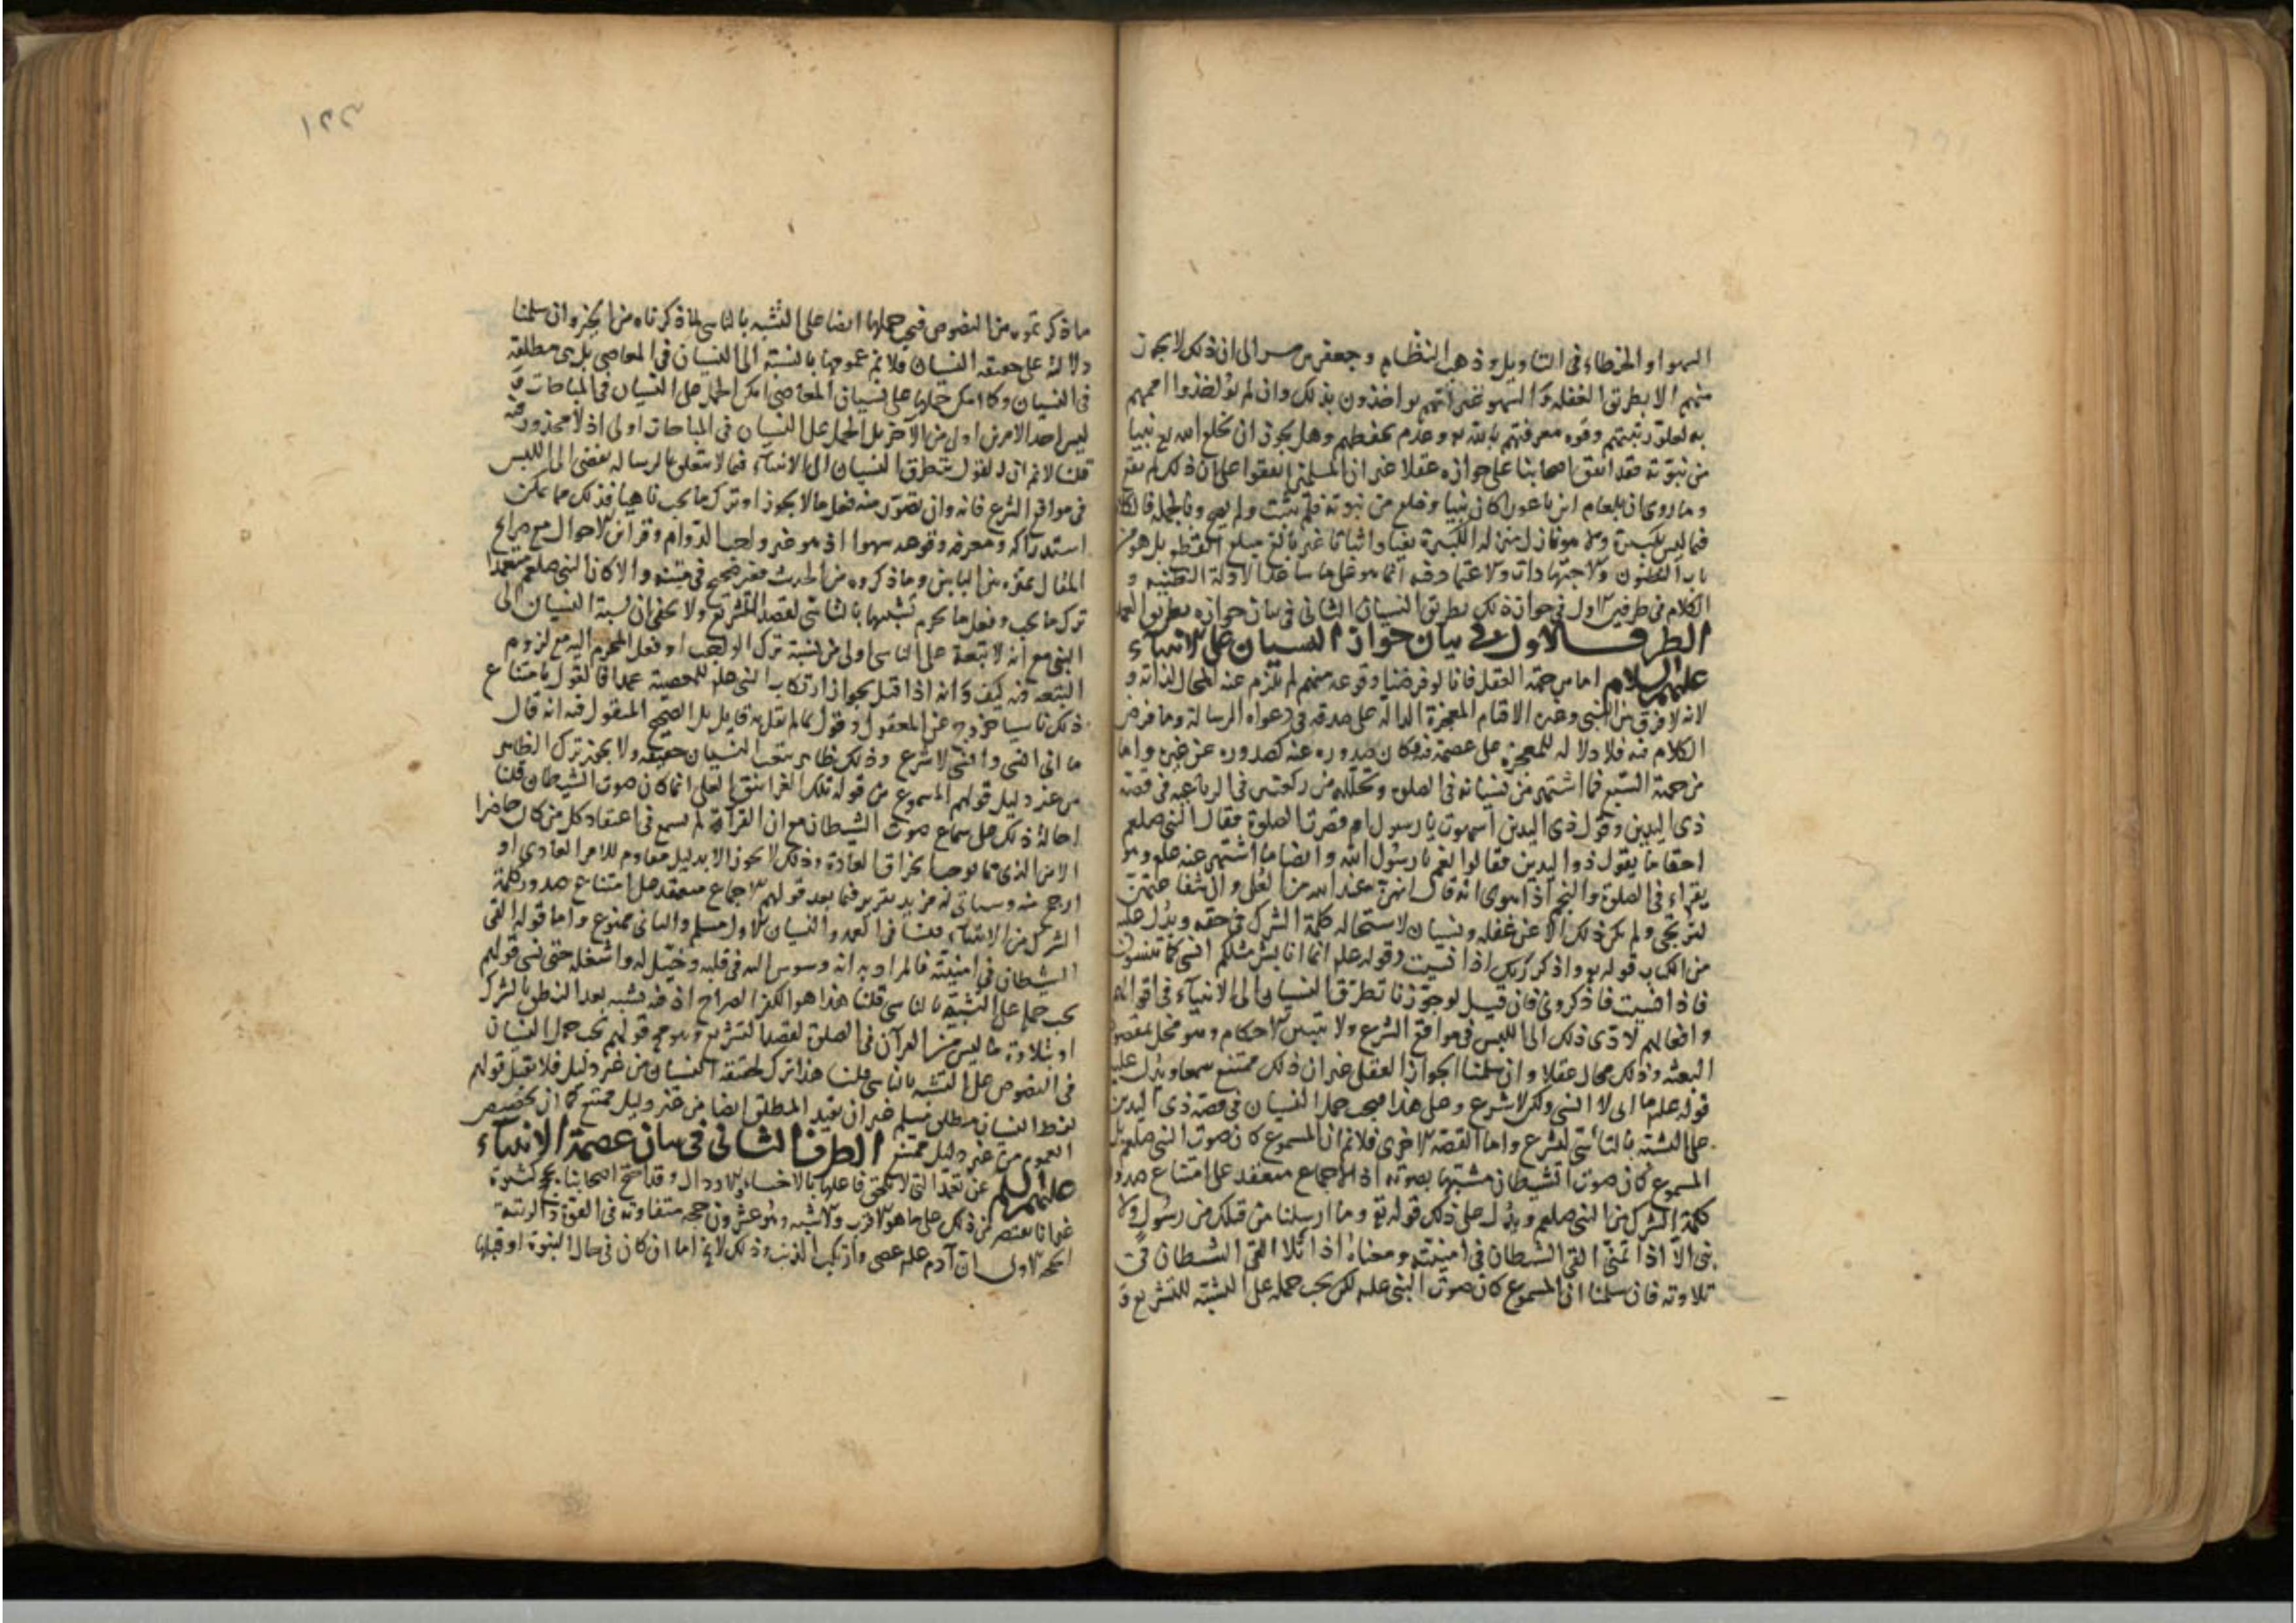 السهو او الخطاء فى التاويل وذهب النظام وجعفر بن مبشر الى ان ذلك لا يجوز
منهم الا بطريق الغفلة والسهو غير انهم يواخذون بذلك وان لم يؤاخذوا اممهم
به لعلو رتبتهم وقوه معرفتهم بالله وعدم تحفظهم وهل يجوز ان يخلع الله نبيا
من نبوته فقد اتفق اصحابنا على جوازه عقلا غير ان المسلمين اتفقوا على ان ذلك لم يقع
وما روى ان بلعام ابن باعورا كان نبيا وخلع من نبوته فلم يثبت ولم يصح وبالجملة فالكلام
فيما ليس بكبيرة ولا هو نازل منزلة الكبيرة نفيا واثباتا غير بالغ مبلغ القطع بل هو من
باب الظنون والاجتهادات والاعتماد فيه انما هو على ما ساعد الادلة الظنيه و
الكلام فى طرفين الاول فى جواز ذلك بطريق النسيان الثانى فى بيان جوازه بطريق العمد
الطرف الاول فى بيان جواز النسيان على الانبياء
عليهم السلام اما من جهة العقل فانا لو فرضنا وقوعه منهم لم يلزم عنه المحال لذاته و
لانه لا فرق بين النبى وغيره الا قيام المعجزة الدالة على صدقه فى دعواه الرسالة وما فرض
الكلام فيه فلا دلالة للمعجزه على عصمته فيه فكان صدوره عنه كصدوره عن غيره واما
من جهة السمع فما اشتهر من نسيانه فى الصلوه وتحلله من ركعتين فى الرباعيه فى قصة
ذى اليدين وقول ذى اليدين اسهوت يا رسول ام قصرت الصلوة فقال النبى صلعم
احقا ما يقول ذو اليدين فقالوا نعم يا رسول الله وايضا ما اشتهر عنه علم وهو
يقراء فى الصلوة والنجم اذا هوى انه قال
لترتجى ولم يكن ذلك الا عن غفله ونسيان لاستحالة كلمة الشرك فى حقه ويدل عليه
من الكتاب قوله واذكر ربك اذا نسيت وقوله علم انما انا بشر مثلكم انسى كما تنسون
فاذا نسيت فاذكرونى فان قيل لو جوزنا تطرق النسيان الى الانبياء فى اقوالهم
وافعالهم لادى ذلك الى اللبس فى مواقع الشرع ولا تتبين الاحكام وهو مخل بمقصود
البعثه وذلك محال عقلا وان سلمنا الجواز العقلى غير ان ذلك ممتنع سمعا ويدل عليه
قوله علم اما انى لا انسى ولكن لاشرع وعلى هذا فيجب حمل النسيان فى قصة ذى اليدين
على التشبه بالناسى ليشرع واما القصة الاخرى فلا نم ان المسموع كان صوت النبى صلعم بل
المسموع كان صوت الشيطان مشتبها بصوته اذ الاجماع منعقد على امتناع صدور
كلمة الشرك من النبى صلعم ويدل على ذلك قوله تع وما ارسلنا من قبلك من رسول ولا
نبى الا اذا تمنى القى الشيطان فى امنيته ومعناه اذا تلا القى الشيطان فى
تلاوته فان سلمنا ان المسموع كان صوت النبى علم لكن يجب حمله على التشبه للتشريع و
١٢٢
ما ذكرتموه من النصوص فيجب حملها ايضا على التشبه بالناسى لما ذكرناه من الخبر وان سلمنا
دلالة على حقيقه النسيان فلا نم عمومها بالنسبة الى النسيان فى المعاصى بل هى مطلقة
فى النسيان وكما امكن حملها على نسيان المعاصى امكن الحمل على النسيان فى المباحات و
ليس احد الامرين اولى من الآخر بل الحمل على النسيان فى المباحات اولى اذ لا محذور فيه
قلنا لا نم ان القول بتطرق النسيان الى الانبياء فيما لا يتعلق بالرساله يفضى الى اللبس
فى مواقع الشرع فانه وان تصور منه فعل ما لا يجوز او ترك ما يجب ناهيا فذلك مما يمكن
استدراكه ومعرفه وقوعه سهوا اذ هو غير واجب الدوام وقرائن الاحوال مع صرايح
المقال مميزه بين البابين وما ذكروه من الحديث فغير صحيح فى متنه والا كان النبى صلعم متعمدا
ترك ما يجب وفعل ما يحرم تشبيها بالناسى لقصد التشريع ولا يخفى ان نسبة النسيان الى
النبى مع انه لا تبعة على الناسى اولى من نسبة ترك الواجب او فعل المحرم اليه مع لزوم
التبعه فيه كيف وانه اذا قيل بجواز ارتكاب النبى علم للمعصية عمدا فالقول بامتناع
ذلك ناسيا خروج عن المعقول وقول بما لم يقل به قايل بل الصحيح المنقول فيه انه قال
ما انى انسى وانسى لاشرع وذلك ظاهر يتعين النسيان حقيقة ولا يجوز ترك الظاهر
من غير دليل قولهم المسموع من قوله تلك الغرانيق العلى انما كان صوت الشيطان قلنا
احالة ذلك على سماع صوت الشيطان مع ان القراة لم يسمع فى اعتقاد كل من كان حاضرا
الا من النبى مما يوجب انخراق العادة وذلك لا يجوز الا بدليل مقاوم للامر العادى او
ارجح منه وسياتى له مزيد تقرير فيما بعد قولهم الاجماع منعقد على امتناع صدور كلمة
الشرك من الانبياء قلنا فى العمد والنسيان الاول مسلم والثانى ممنوع واما قوله القى
الشيطان فى امنيته فالمراد به انه وسوس اليه فى قلبه وخيل له واشغله حتى نسى قولهم
يجب حمله على التشبه بالناسى قلنا هذا هو الكفر الصراح اذ فيه تشبه بعد النطق بالشرك
او بتلاوة ما ليس من القرآن فى الصلوة لقصد التشريع وهو مح قولهم يجب حمل النسيان
فى النصوص على التشبه بالناسى قلنا هذا ترك لحقيقة النسيان من غير دليل فلا يقبل قولهم
لفظ النسيان مطلق مسلم غير ان تقييد المطلق ايضا من غير دليل ممتنع كما ان تخصيص
العموم من غير دليل ممتنع الطرف الثانى فى بيان عصمة الانبياء
عليهم السلم عن تعمد التى لا تلحق فاعلها بالاخساء والارذال وقد احتج اصحابنا بحجج كثيرة
غير انا نقتصر من ذلك على ما هو الاقرب والاشبه وهو عشرون حجه متفاوته فى القوة والرتبة
الحجه الاولى ان آدم علم عصى وارتكب الذنب وذلك لا يخ اما ان كان فى حال النبوة او قبلها